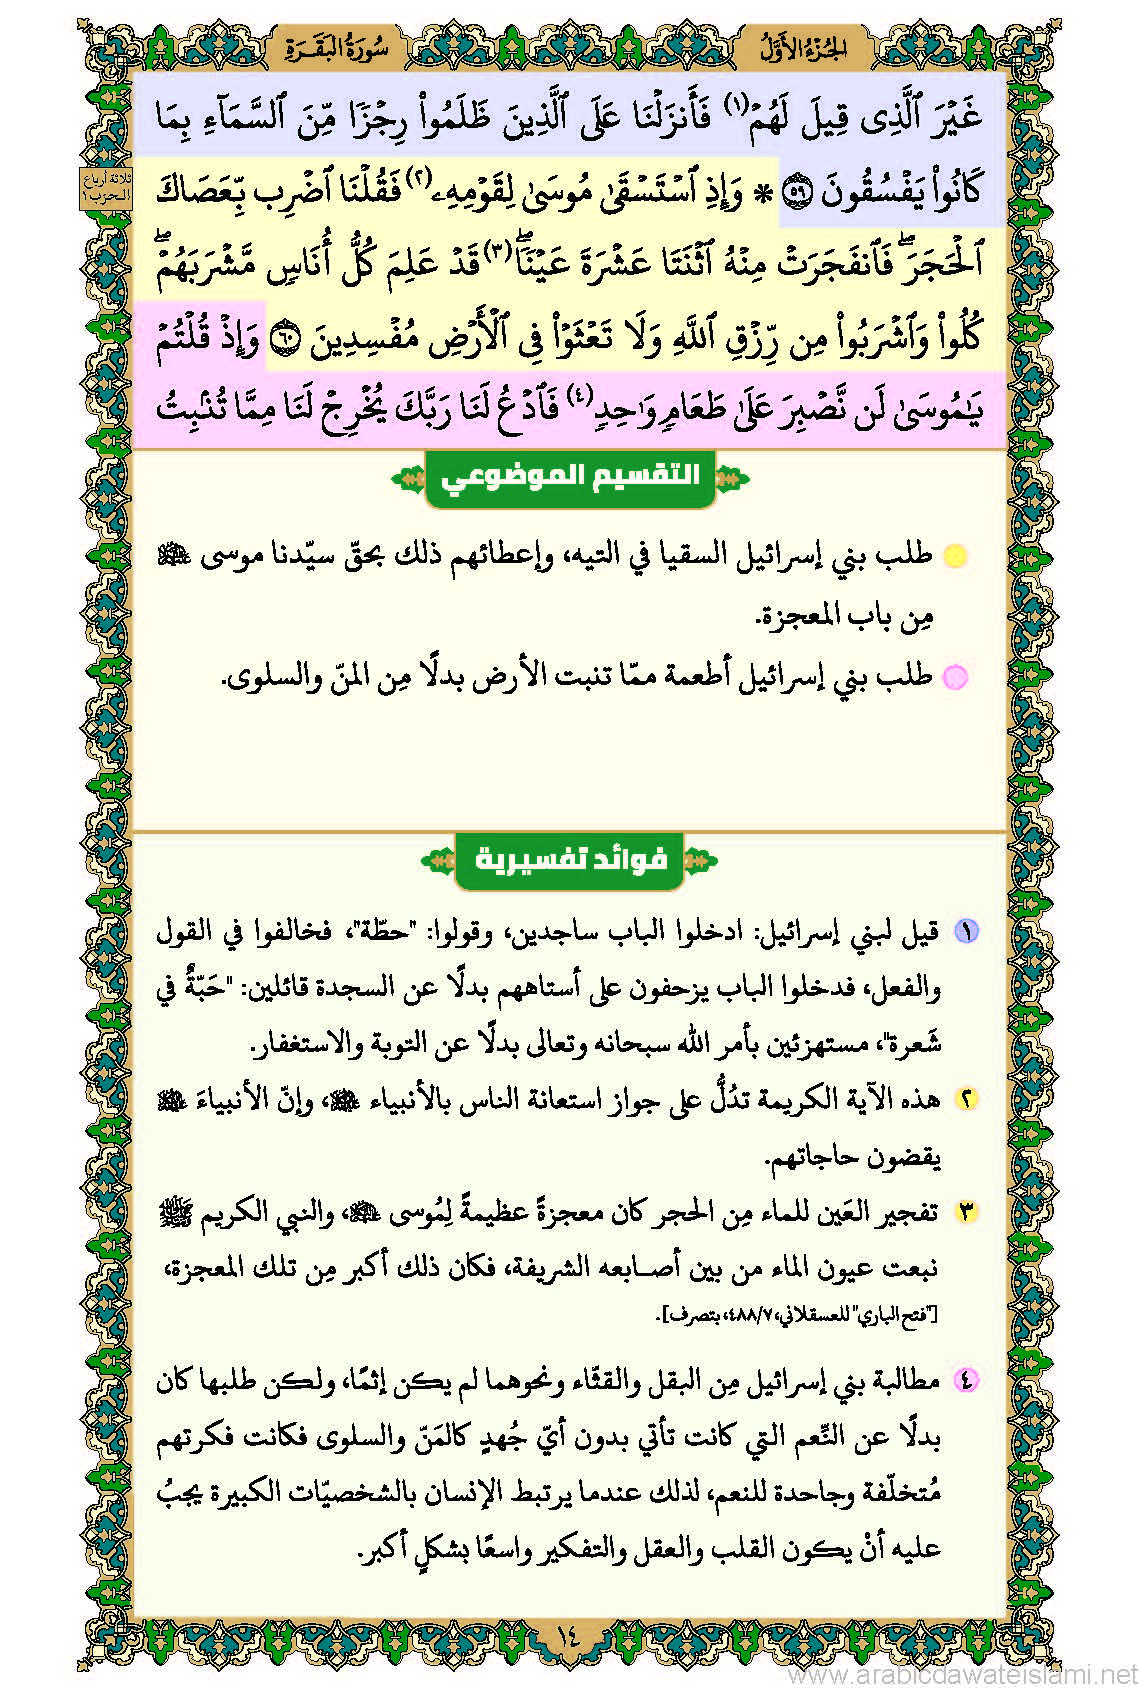 الجُزْءُ الأَوَّلُ
سُورَةُ البَقَرَةِ
غَيْرَ ٱلَّذِى قِيلَ لَهُمْ(١) فَأَنزَلْنَا عَلَى ٱلَّذِينَ ظَلَمُوا۟ رِجْزًا مِّنَ ٱلسَّمَآءِ بِمَا
كَانُوا۟ يَفْسُقُونَ ٥٩ * وَإِذِ ٱسْتَسْقَىٰ مُوسَىٰ لِقَوْمِهِۦ(٢) فَقُلْنَا ٱضْرِب بِّعَصَاكَ
ثلاثة أرباع
الحزب ١
ٱلْحَجَرَ ۖ فَٱنفَجَرَتْ مِنْهُ ٱثْنَتَا عَشْرَةَ عَيْنًا ۖ(٣) قَدْ عَلِمَ كُلُّ أُنَاسٍ مَّشْرَبَهُمْ ۖ
كُلُوا۟ وَٱشْرَبُوا۟ مِن رِّزْقِ ٱللَّهِ وَلَا تَعْثَوْا۟ فِى ٱلْأَرْضِ مُفْسِدِينَ ٦٠ وَإِذْ قُلْتُمْ
يَٰمُوسَىٰ لَن نَّصْبِرَ عَلَىٰ طَعَامٍ وَٰحِدٍ(٤) فَٱدْعُ لَنَا رَبَّكَ يُخْرِجْ لَنَا مِمَّا تُنۢبِتُ
التقسيم الموضوعي
طلب بني إسرائيل السقيا في التيه، وإعطائهم ذلك بحقّ سيّدنا موسى عليه السلام
مِن باب المعجزة.
طلب بني إسرائيل أطعمة ممّا تنبت الأرض بدلًا مِن المنّ والسلوى.
فوائد تفسيرية
١ قيل لبني إسرائيل: ادخلوا الباب ساجدين، وقولوا: "حطّة"، فخالفوا في القول
والفعل، فدخلوا الباب يزحفون على أستاههم بدلًا عن السجدة قائلين: "حَبّةٌ في
شَعرة"، مستهزئين بأمر الله سبحانه وتعالى بدلًا عن التوبة والاستغفار.
٢ هذه الآية الكريمة تدُلُّ على جواز استعانة الناس بالأنبياء عليهم السلام، وإنّ الأنبياءَ عليهم السلام
يقضون حاجاتهم.
٣ تفجير العَين للماء مِن الحجر كان معجزةً عظيمةً لِمُوسى عليه السلام، والنبي الكريم ﷺ
نبعت عيون الماء من بين أصابعه الشريفة، فكان ذلك أكبر مِن تلك المعجزة،
["فتح الباري" للعسقلاني، ٤٨٨/٧، بتصرف].
٤ مطالبة بني إسرائيل مِن البقل والقثّاء ونحوهما لم يكن إثمًا، ولكن طلبها كان
بدلًا عن النِّعم التي كانت تأتي بدون أيّ جُهدٍ كالمَنّ والسلوى فكانت فكرتهم
مُتخلّفة وجاحدة للنعم، لذلك عندما يرتبط الإنسان بالشخصيّات الكبيرة يجبُ
عليه أنْ يكون القلب والعقل والتفكير واسعًا بشكلٍ أكبر.
١٤
www.arabicdawateislami.net